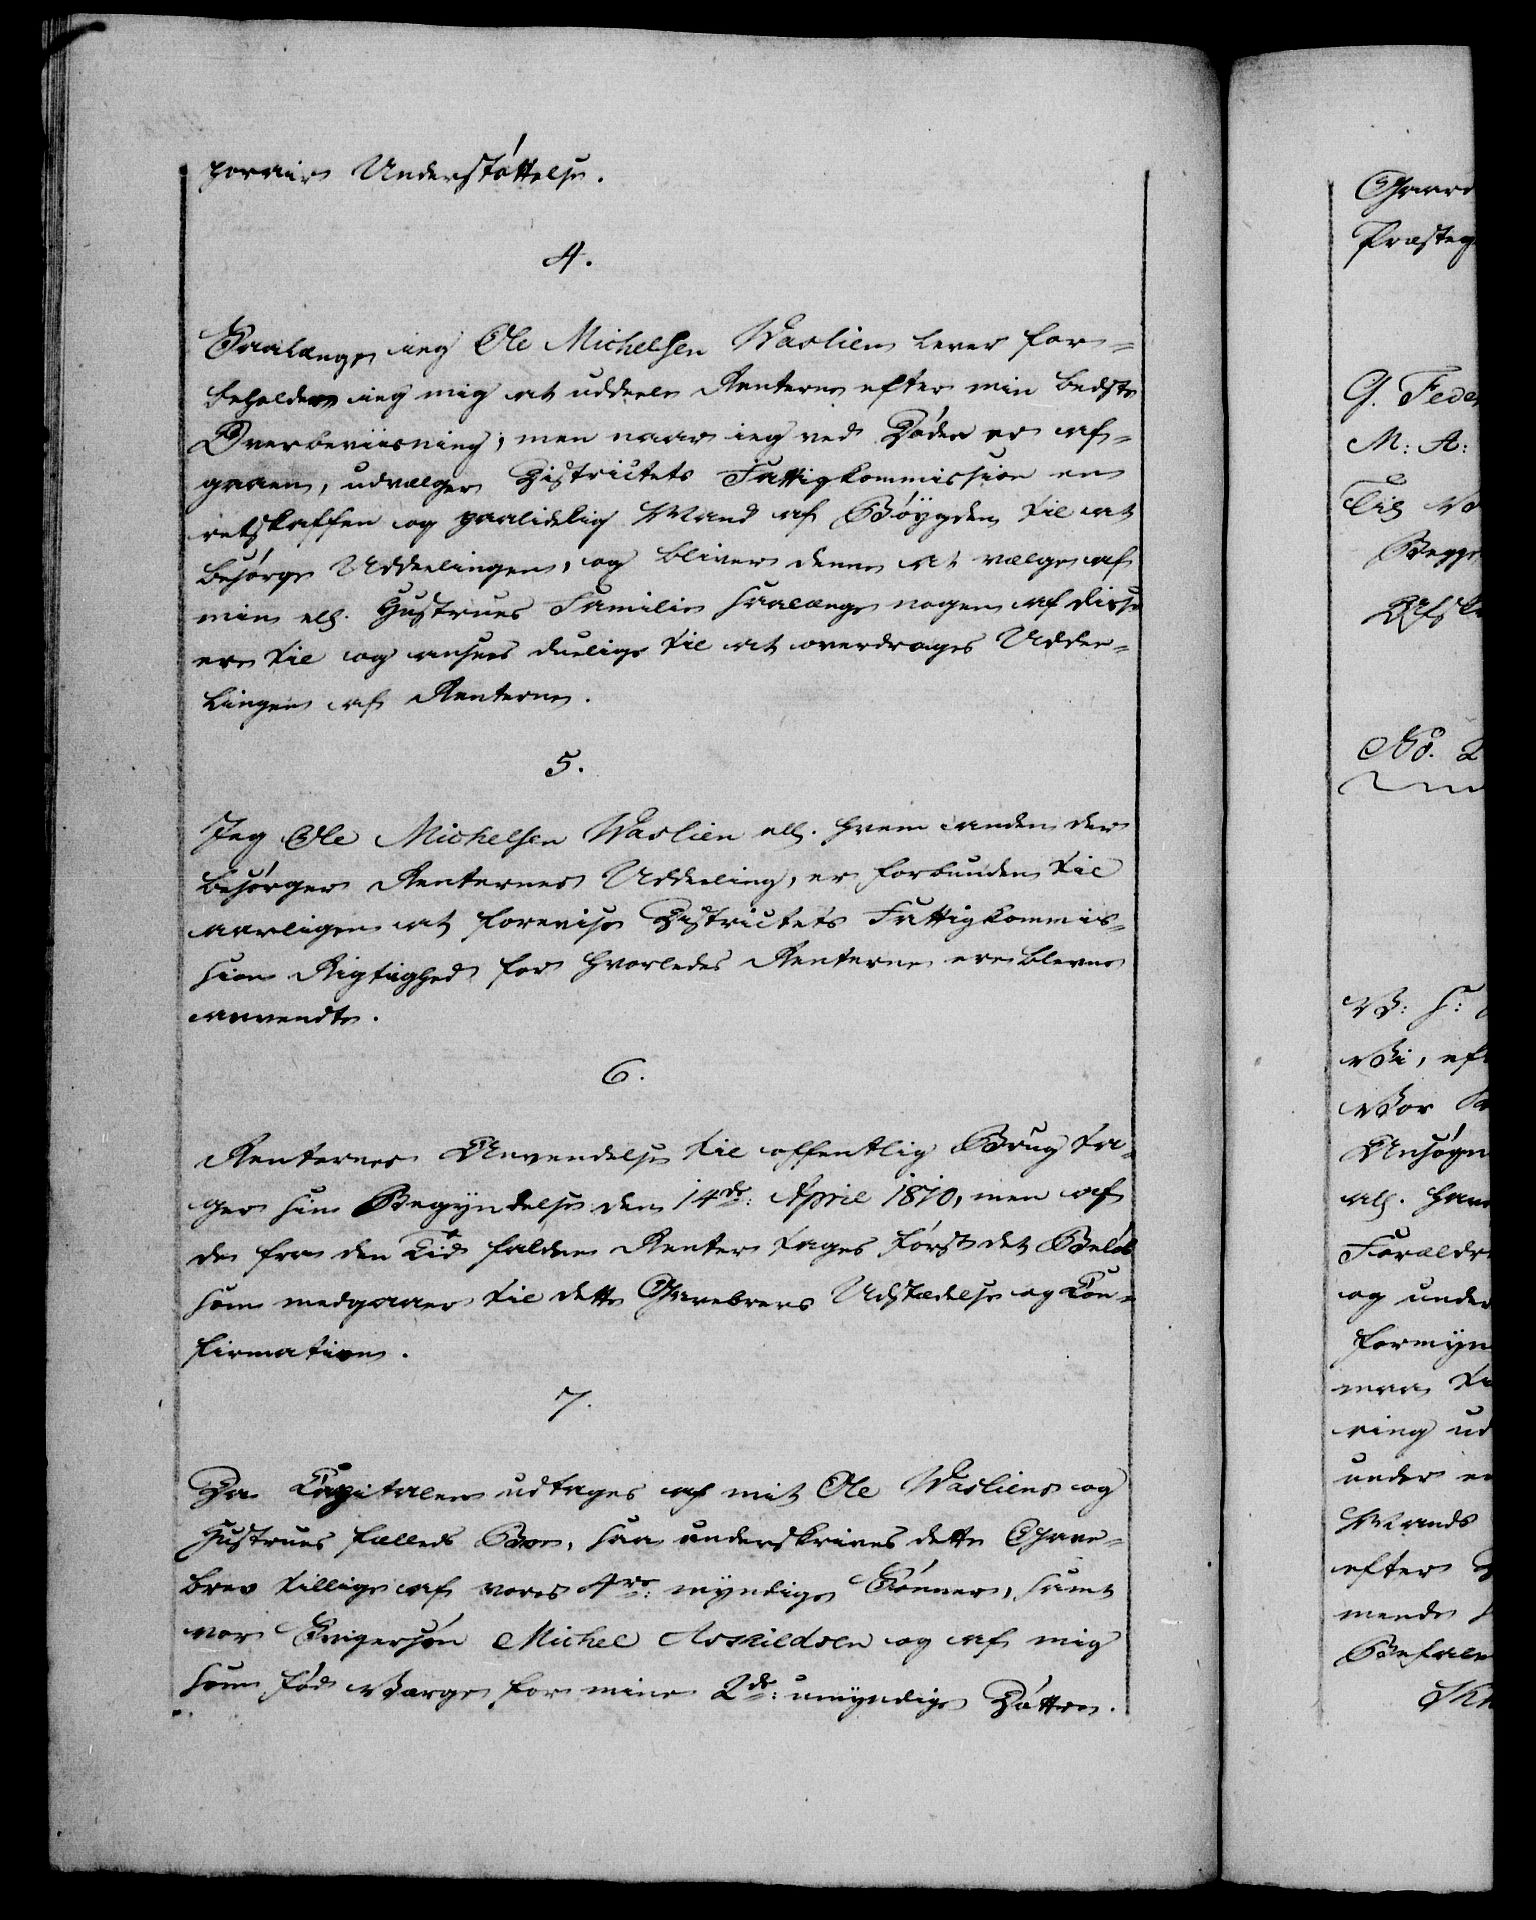 porair Understøttelse.
4.
Saalænge ieg Ole Michelsen Waslien lever for=
beholder ieg mig at uddeele Renterne efter min bedste
Overbeviisning; men naar ieg ved Døden er af=
gaaen, udvælger Districtets Fattigkommission en
retskaffen og paalidelig Mand af Bøygden til at
besørge Uddelingen, og bliver denne at vælge af
min ell. Hustrues Familie saalænge nogen af disse
ere til og ansees duelige til at overdrages Uddee=
lingen af Renterne.
5.
Jeg Ole Michelsen Waslien ell. hvem anden der
besørger Renternes Uddeeling, er forbunden til
aarligen at forevise Districtets Fattigkommis=
sion Rigtighed for hvorledes Renterne ere blevne
anvendte.
6.
Renternes Anvendelse til offentlig Brug ta=
ger sin Begyndelse den 14de: April 1810, men af
de fra den Tid faldne Renter tages først det Beløb
som medgaaer til dette Gavebrevs Udstædelse og Con=
firmation.
7.
Da Capitalen udtages af mit Ole Wasliens og
Hustrues fælleds Boe, saa underskrives dette Gave=
brev tillige af vores 4re: myndige Sønner, samt
vor Svigersøn Michel Askildsen og af mig
som fød Værge for mine 2de: umyndige Døttre.
Gaard
Præsteg
G. Fede
M: A:
Til
Begge
Afsk
No. 2
V: S:
Vi, eft
Vor
Ansøgn
all. have
Forældre
og under
formyn
maa
ring ud
under en
Mands
efter
mende
Befale